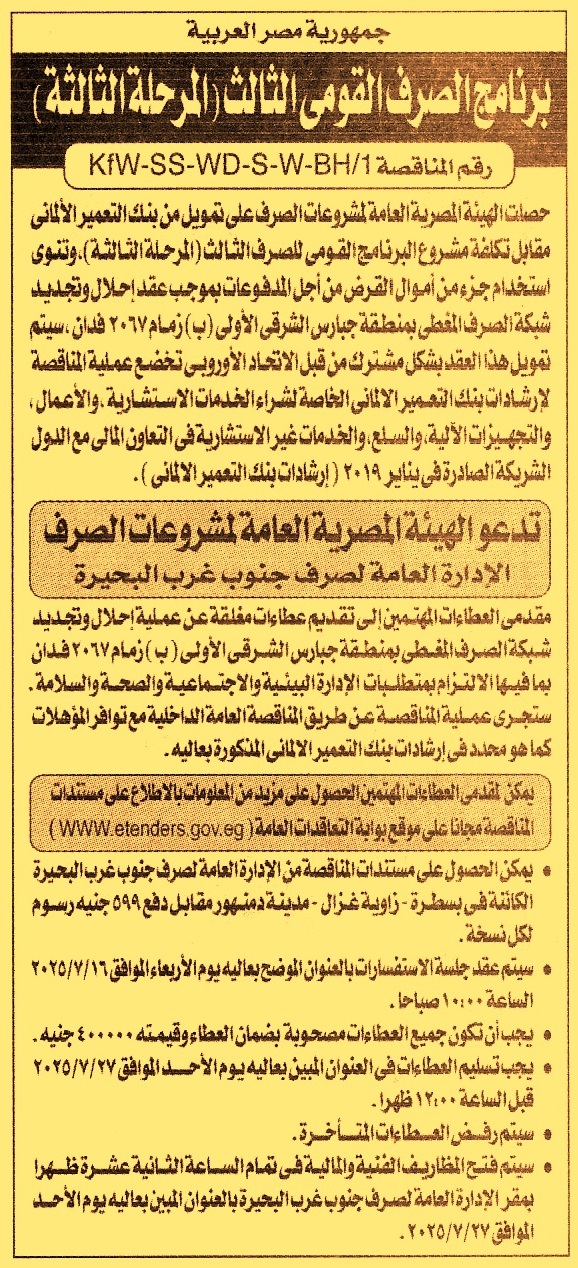 جمهورية مصر العربية
برنامج الصرف القومى الثالث (المرحلة الثالثة)
رقم المناقصة KfW-SS-WD-S-W-BH/1
حصلت الهيئة المصرية العامة لمشروعات الصرف على تمويل من بنك التعمير الألمانى
مقابل تكلفة مشروع البرنامج القومى للصرف الثالث (المرحلة الثالثة)، وتنوى
استخدام جزء من أموال القرض من أجل المدفوعات بموجب عقد إحلال وتجديد
شبكة الصرف المغطى بمنطقة جبارس الشرقى الأولى (ب) زمام ٢٠٦٧ فدان، سيتم
تمويل هذا العقد بشكل مشترك من قبل الاتحاد الأوروبى تخضع عملية المناقصة
لارشادات بنك التعمير الالمانى الخاصة لشراء الخدمات الاستشارية، والأعمال،
والتجهيزات الألية، والسلع، والخدمات غير الاستشارية فى التعاون المالى مع الدول
الشريكة الصادرة فى يناير ٢٠١٩ (إرشادات بنك التعمير الالمانى).
تدعو الهيئة المصرية العامة لمشروعات الصرف
الإدارة العامة لصرف جنوب غرب البحيرة
مقدمى العطاءات المهتمين إلى تقديم عطاءات مغلقة عن عملية إحلال وتجديد
شبكة الصرف المغطى بمنطقة جبارس الشرقى الأولى (ب) زمام ٢٠٦٧ فدان
بما فيها الالتزام بمتطلبات الإدارة البيئية والاجتماعية والصحة والسلامة.
ستجرى عملية المناقصة عن طريق المناقصة العامة الداخلية مع توافر المؤهلات
كما هو محدد فى إرشادات بنك التعمير الالمانى المذكورة بعاليه.
يمكن لمقدمى العطاءات المهتمين الحصول على مزيد من المعلومات بالاطلاع على مستندات
المناقصة مجانا على موقع بوابة التعاقدات العامة (WWW.etenders.gov.eg)
• يمكن الحصول على مستندات المناقصة من الإدارة العامة لصرف جنوب غرب البحيرة
الكائنة فى بسطرة - زاوية غزال - مدينة دمنهور مقابل دفع ٥٩٩ جنيه رسوم
لكل نسخة.
• سيتم عقد جلسة الاستفسارات بالعنوان الموضح بعاليه يوم الأربعاء الموافق ٢٠٢٥/٧/١٦
الساعة ١٠:٠٠ صباحا.
• يجب أن تكون جميع العطاءات مصحوبة بضمان العطاء وقيمته ٤٠٠٠٠٠ جنيه.
• يجب تسليم العطاءات فى العنوان المبين بعاليه يوم الأحد الموافق ٢٠٢٥/٧/٢٧
قبل الساعة ١٢:٠٠ ظهرا.
• سيتم رفض العطاءات المتأخرة.
• سيتم فتح المظاريف الفنية والمالية فى تمام الساعة الثانية عشرة ظهرا
بمقر الإدارة العامة لصرف جنوب غرب البحيرة بالعنوان المبين بعاليه يوم الأحد
الموافق ٢٠٢٥/٧/٢٧.